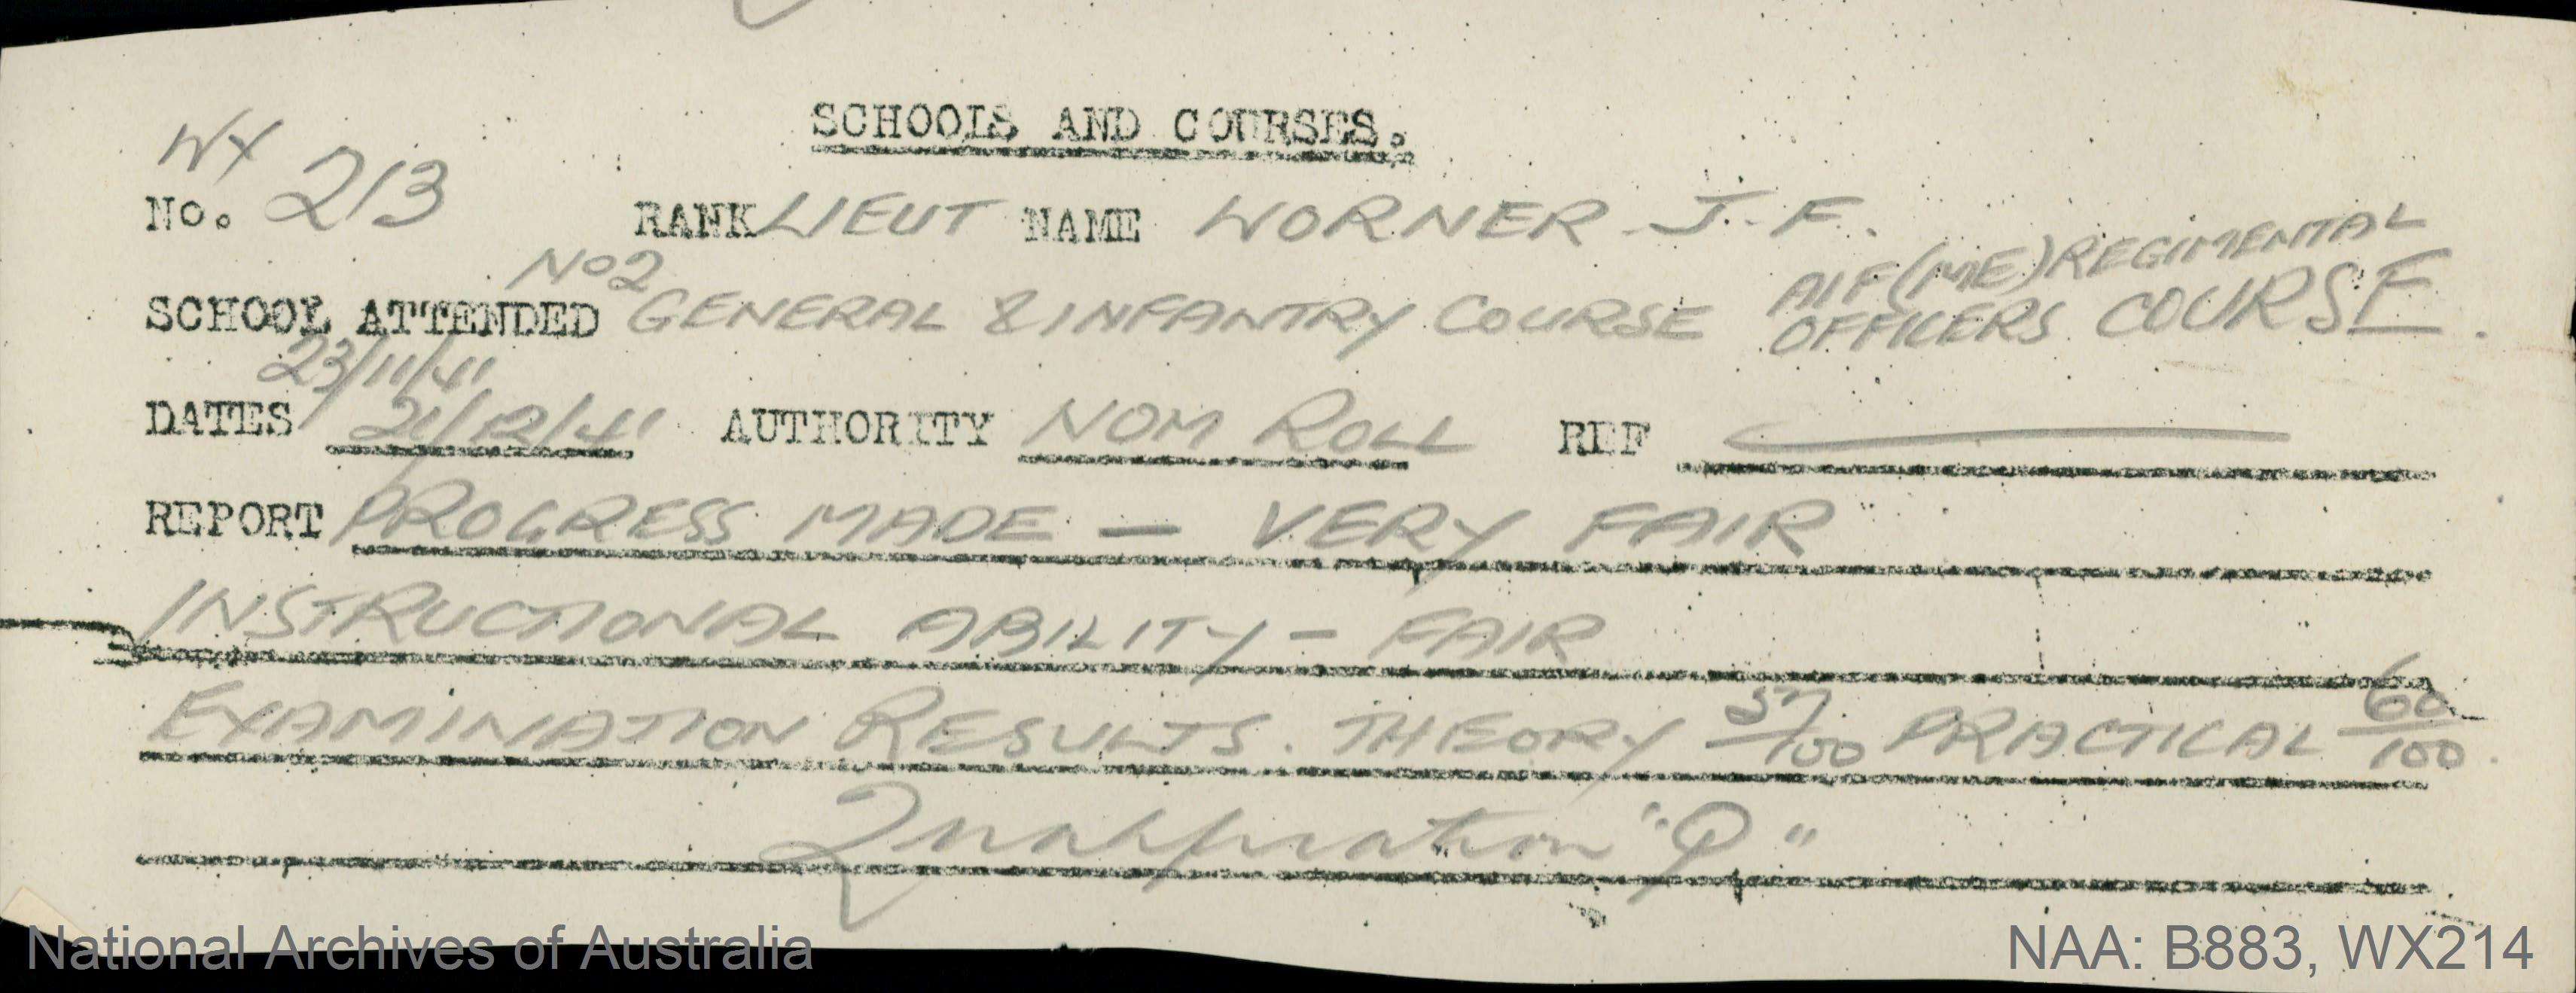 SCHOOLS AND COURSES.
WX
No. 213 RANK LIEUT NAME WORNER J. F.
No 2 AIF (ME) REGIMENTAL
SCHOOL ATTENDED GENERAL & INFANTRY COURSE OFFICERS COURSE.
23/11/41
DATES 21/12/41 AUTHORITY NOM ROLL REF
REPORT PROGRESS MADE — VERY FAIR
INSTRUCTIONAL ABILITY - FAIR
EXAMINATION RESULTS. THEORY 57/100 PRACTICAL 60/100.
Qualification "Q"
National Archives of Australia NAA: B883, WX214